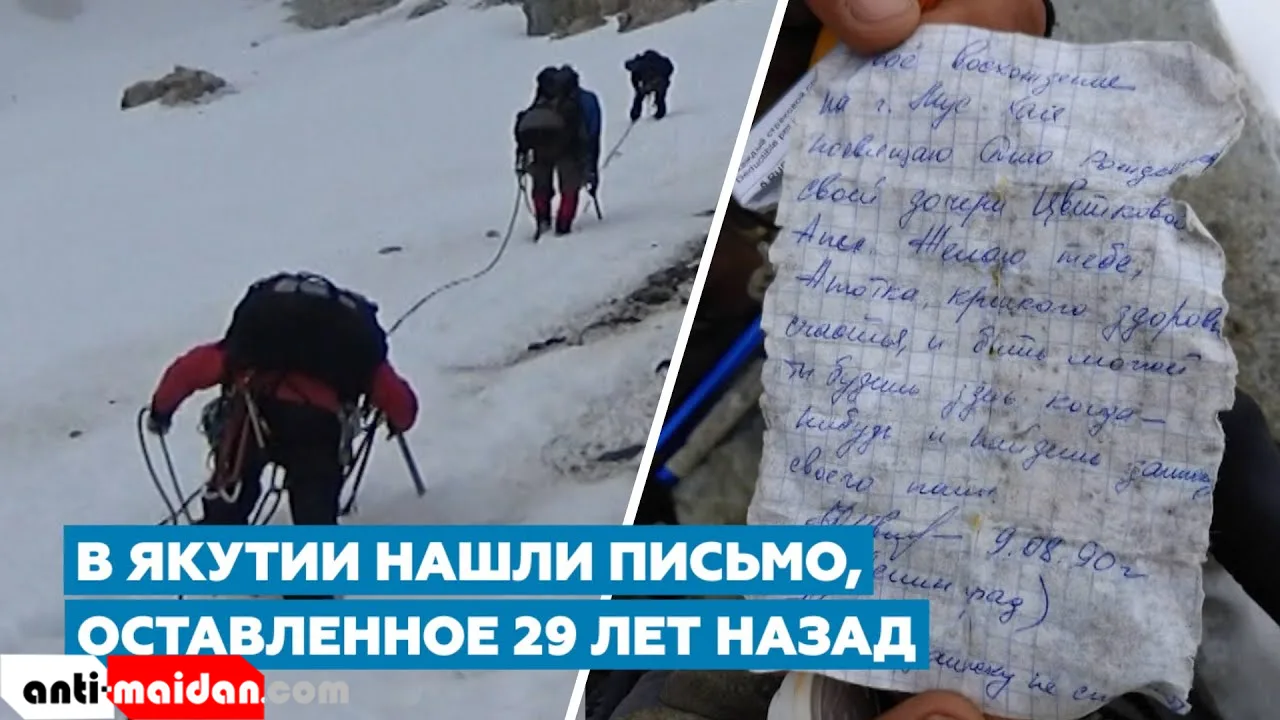 восхождение
на г. Мус-Хая
посвящаю Дню рождения
своей дочери Цветковой
Ани. Желаю тебе,
Анютка, крепкого здоровья
счастья, и быть может
ты будешь здесь когда-
нибудь и найдешь записку
своего папы
9.08.90 г
В ЯКУТИИ НАШЛИ ПИСЬМО,
ОСТАВЛЕННОЕ 29 ЛЕТ НАЗАД
anti-maidan.com